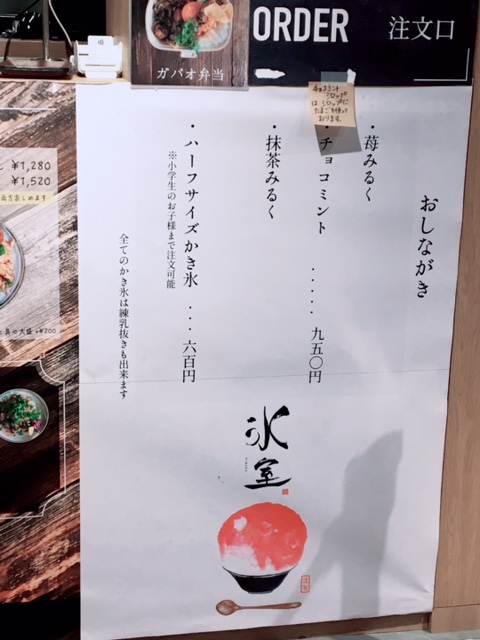 ORDER
注文口
ガパオ弁当
おしながき
・苺みるく
・チョコミント ・・・・・ 九五〇円
・抹茶みるく
・ハーフサイズかき氷 ・・・ 六百円
※小学生のお子様まで注文可能
全てのかき氷は練乳抜きも出来ます
氷室
¥1,280
¥1,520
具の大盛 +¥200